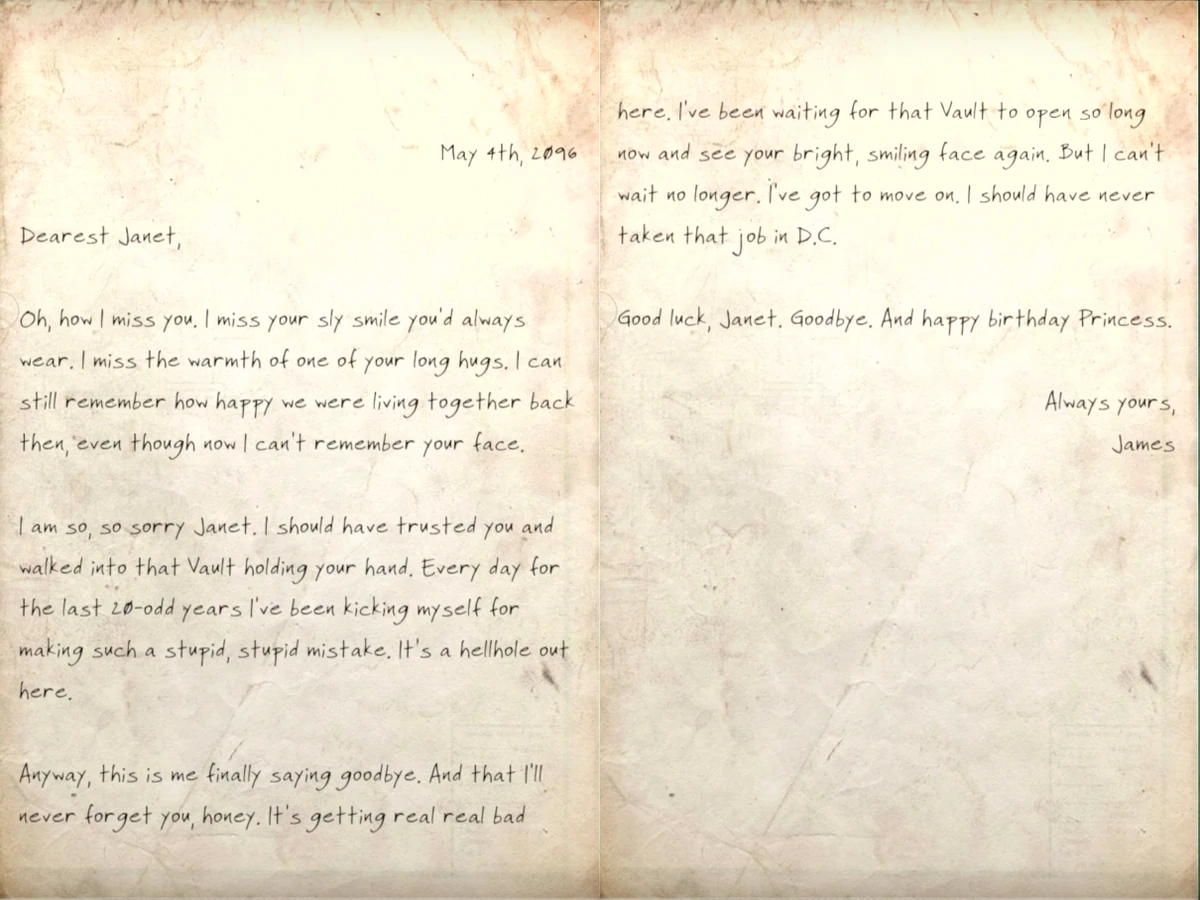 May 4th, 2096
Dearest Janet,
Oh, how I miss you. I miss your sly smile you'd always
wear. I miss the warmth of one of your long hugs. I can
still remember how happy we were living together back
then, even though now I can't remember your face.
I am so, so sorry Janet. I should have trusted you and
walked into that Vault holding your hand. Every day for
the last 20-odd years I've been kicking myself for
making such a stupid, stupid mistake. It's a hellhole out
here.
Anyway, this is me finally saying goodbye. And that I'll
never forget you, honey. It's getting real real bad
here. I've been waiting for that Vault to open so long
now and see your bright, smiling face again. But I can't
wait no longer. I've got to move on. I should have never
taken that job in D.C.
Good luck, Janet. Goodbye. And happy birthday Princess.
Always yours,
James